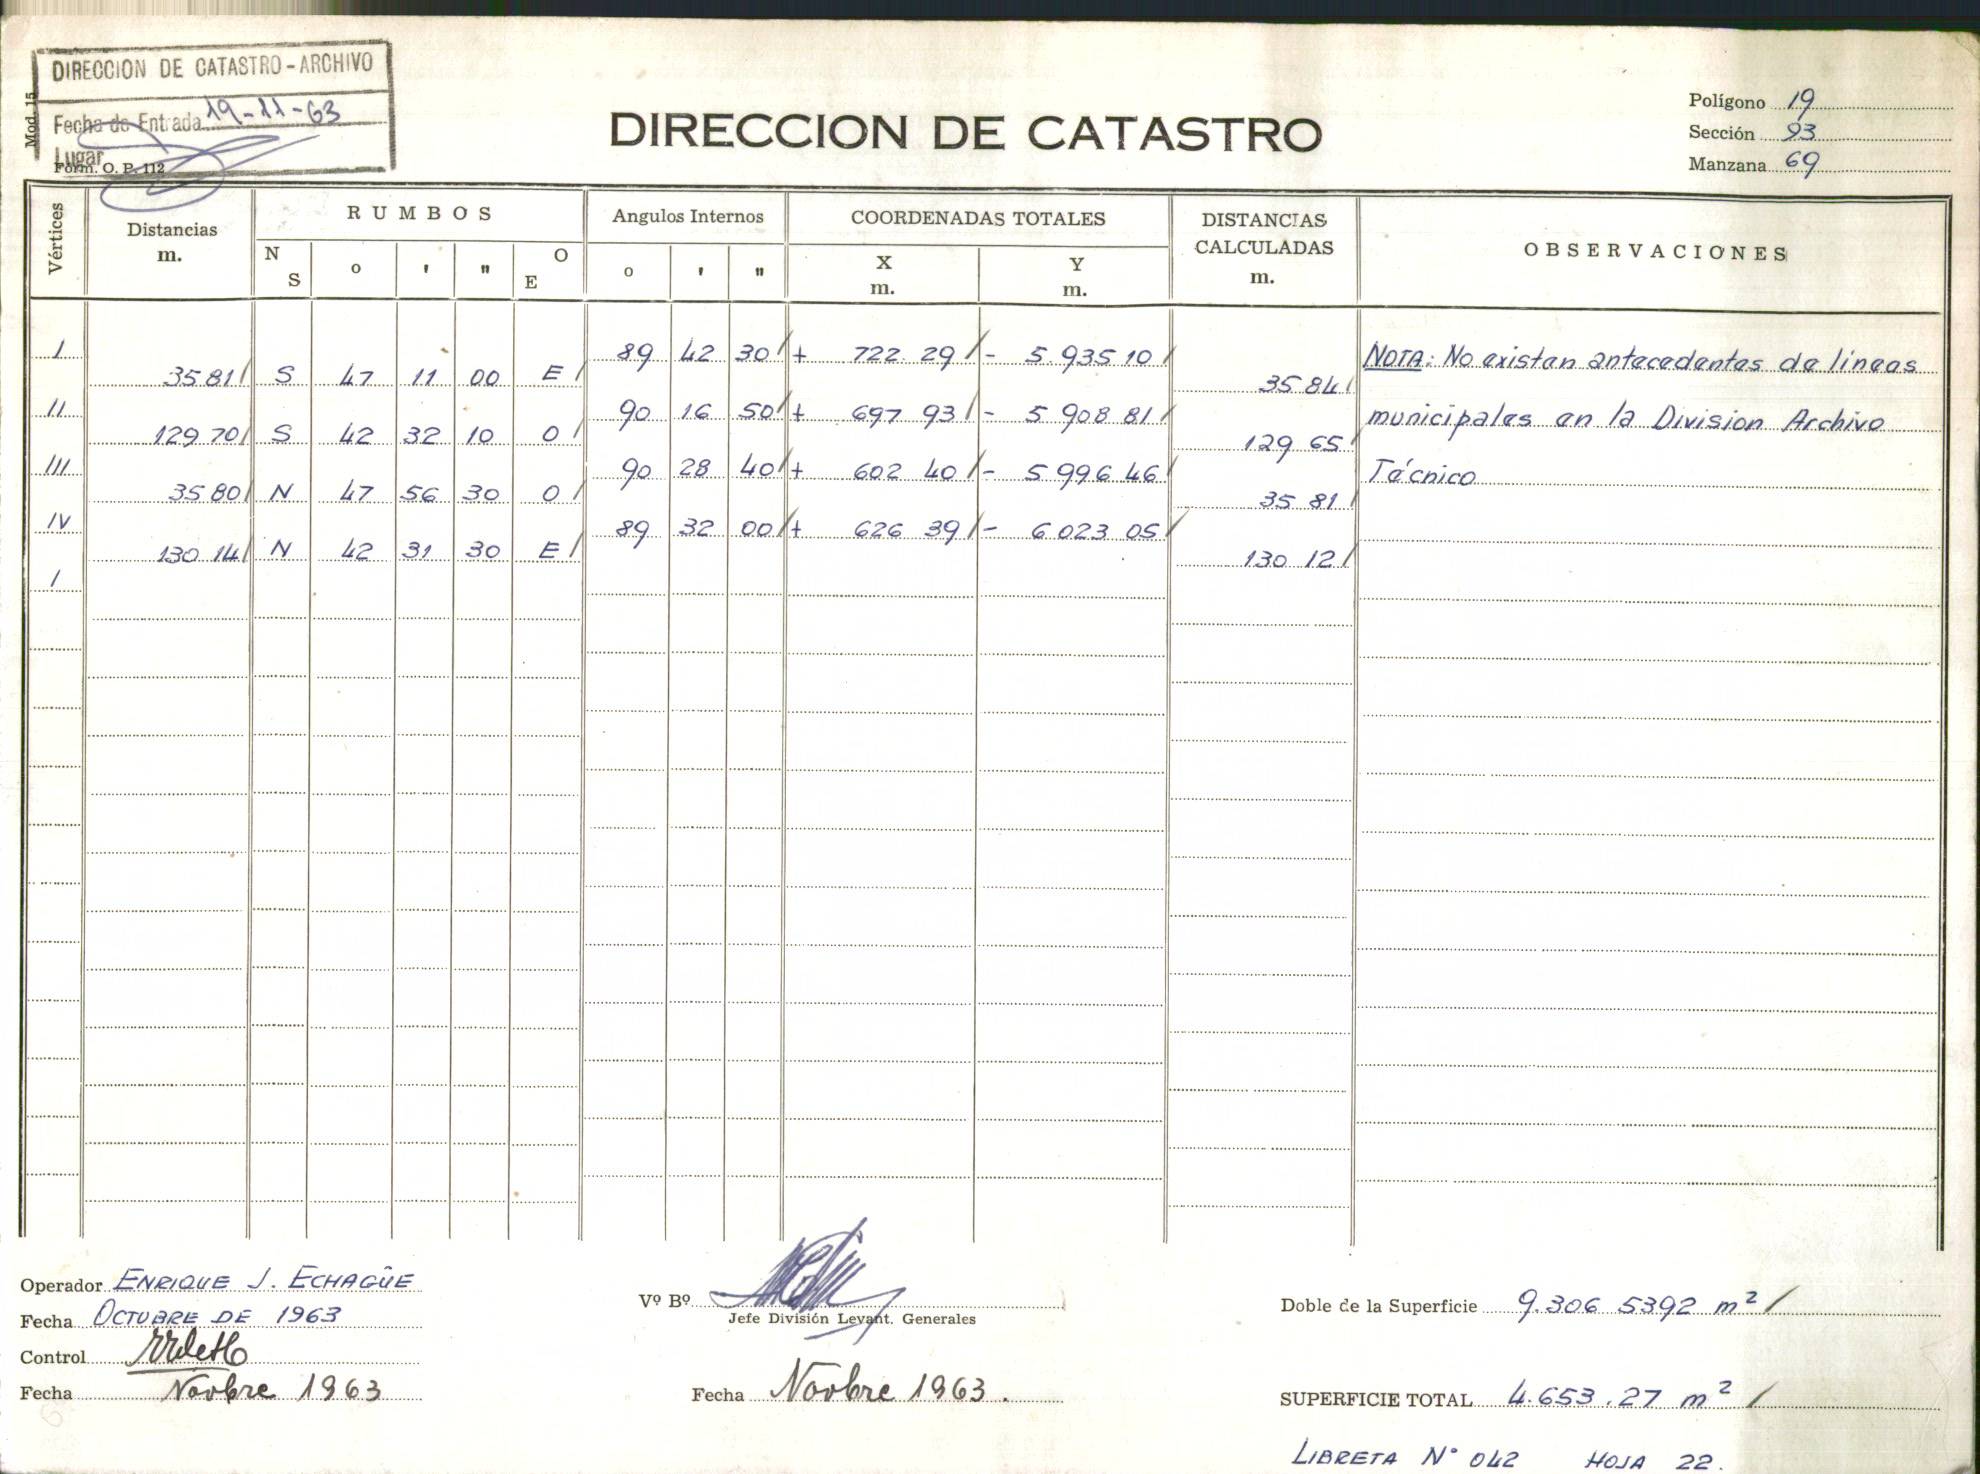 DIRECCION DE CATASTRO - ARCHIVO
Fecha de Entrada 19-11-63
Lugar
Mod. 15
Form. O. P. 112
DIRECCION DE CATASTRO
Polígono 19
Sección 93
Manzana 69
Vértices
Distancias m.
RUMBOS
N S
o ' "
O E
Angulos Internos
o ' "
COORDENADAS TOTALES
X m.
Y m.
DISTANCIAS CALCULADAS m.
OBSERVACIONES
I 89 42 30 + 722 29 - 5 935 10
35 81 S 47 11 00 E 35 84
II 90 16 50 + 697 93 - 5 908 81
129 70 S 42 32 10 O 129 65
III 90 28 40 + 602 40 - 5 996 46
35 80 N 47 56 30 O 35 81
IV 89 32 00 + 626 39 - 6 023 05
130 14 N 42 31 30 E 130 12
I
NOTA: No existen antecedentes de líneas
municipales en la Division Archivo
Técnico
Operador ENRIQUE J. ECHAGÜE
Fecha OCTUBRE DE 1963
Control
Fecha Novbre 1963
Vº Bº
Jefe División Levant. Generales
Fecha Novbre 1963.
Doble de la Superficie 9.306 5392 m²
SUPERFICIE TOTAL 4.653.27 m²
LIBRETA N° 042 HOJA 22.